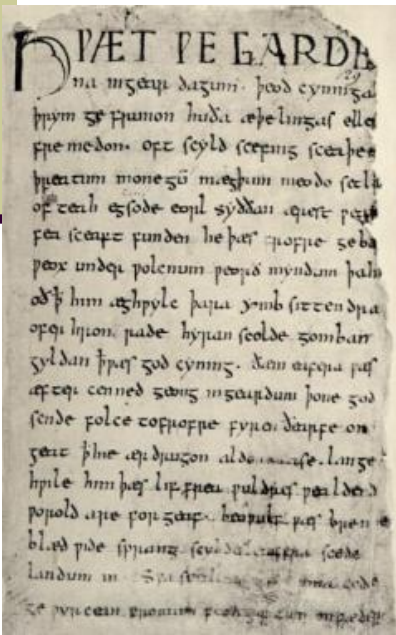 HǷÆT ǷE GARDE
na ingear dagum. þeod cyninga
þrym ge frunon huða æþelingas elle
fre medon. oft scyld scefing sceaþe
þreatum monegū mægþum meodo setla
of teah egsode eorl syððan ærest ƿear
fea sceaft funden he þæs frofre geba
ƿeox under ƿolcnum ƿeorð myndum þah
oð ꝥ him æghƿylc þara ymb sittendra
ofer hron rade hyran scolde gomban
gyldan ꝥ ƿæs god cyning. ðæm eafera ƿæs
æfter cenned geong ingeardum þone god
sende folce tofrofre fyren ðearfe on
geat ꝥ hie ær drugon aldor ase. lange
hƿile him þæs lif frea ƿuldres ƿealdend
ƿorold are for geaf. beoƿulf ƿæs breme
blæd ƿide sprang scyldes eafera scede
landum in. Sƿa guma gode
ge ƿyrcean fromum feoh